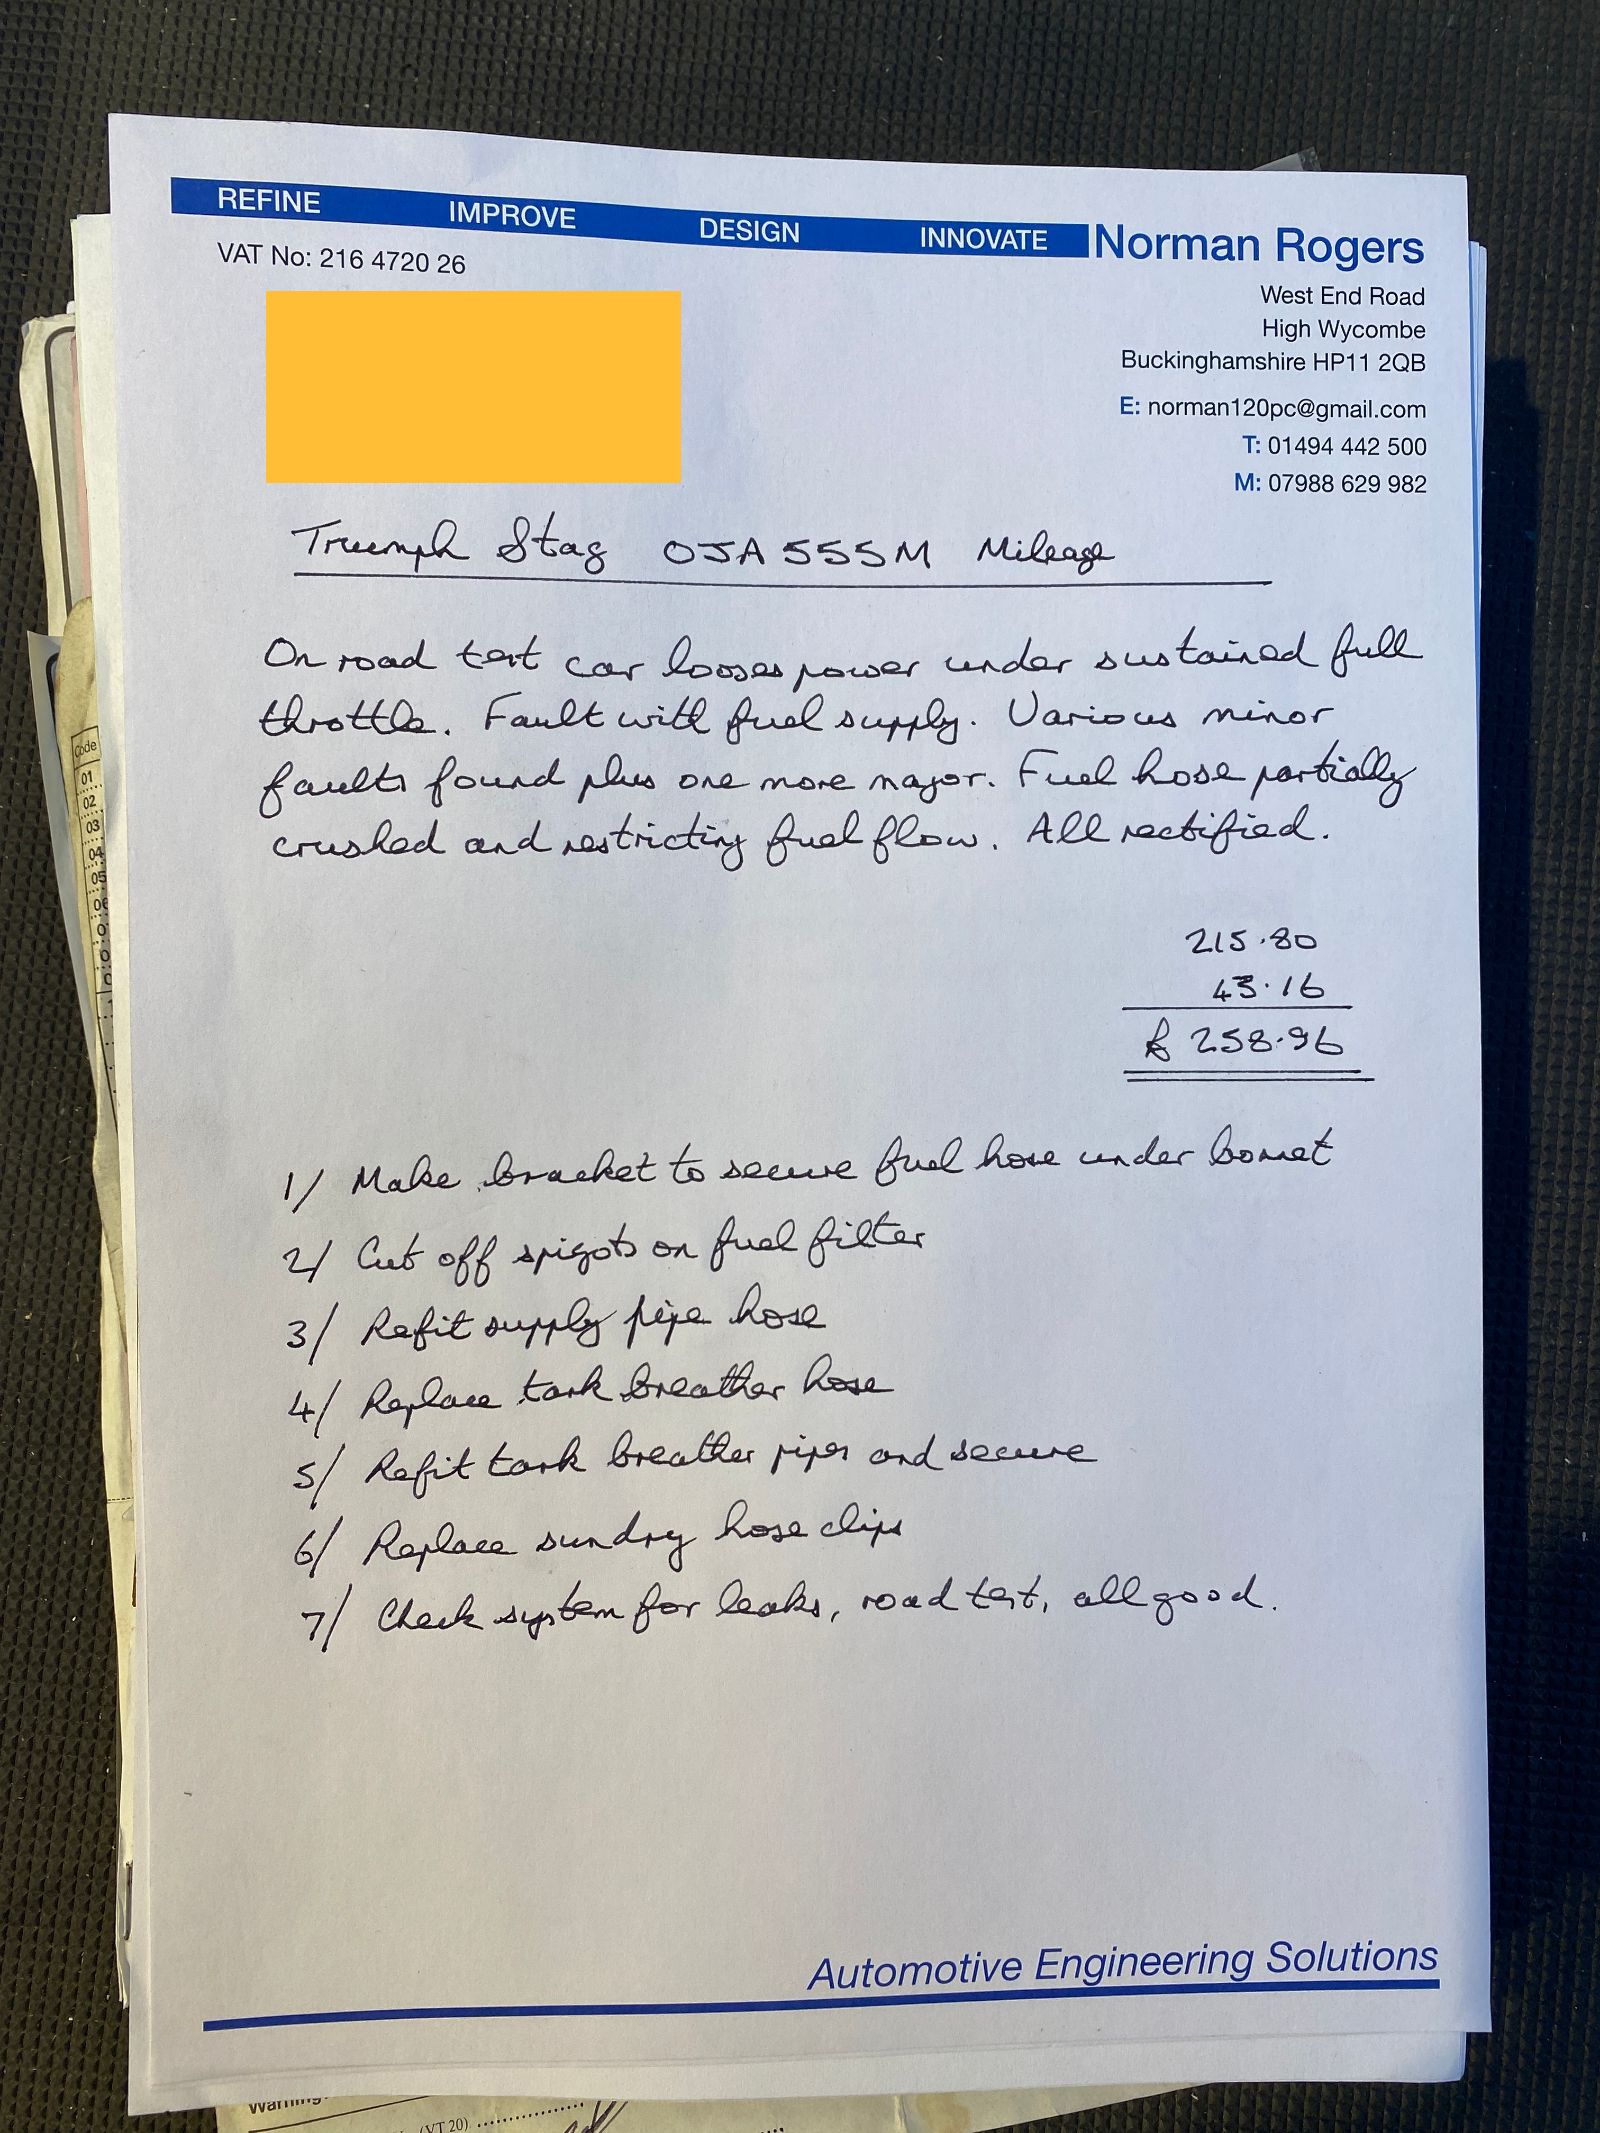 REFINE IMPROVE DESIGN INNOVATE Norman Rogers
VAT No: 216 4720 26
West End Road
High Wycombe
Buckinghamshire HP11 2QB
E: norman120pc@gmail.com
T: 01494 442 500
M: 07988 629 982
Triumph Stag OJA 555M Mileage
On road test car looses power under sustained full
throttle. Fault with fuel supply. Various minor
faults found plus one more major. Fuel hose partially
crushed and restricting fuel flow. All rectified.
215.80
43.16
£ 258.96
1/ Make bracket to secure fuel hose under bonnet
2/ Cut off spigots on fuel filter
3/ Refit supply pipe hose
4/ Replace tank breather hose
5/ Refit tank breather pipes and secure
6/ Replace sundry hose clips
7/ Check system for leaks, road test, all good.
Automotive Engineering Solutions
Code
01
02
03
04
05
Warning
(VT20)